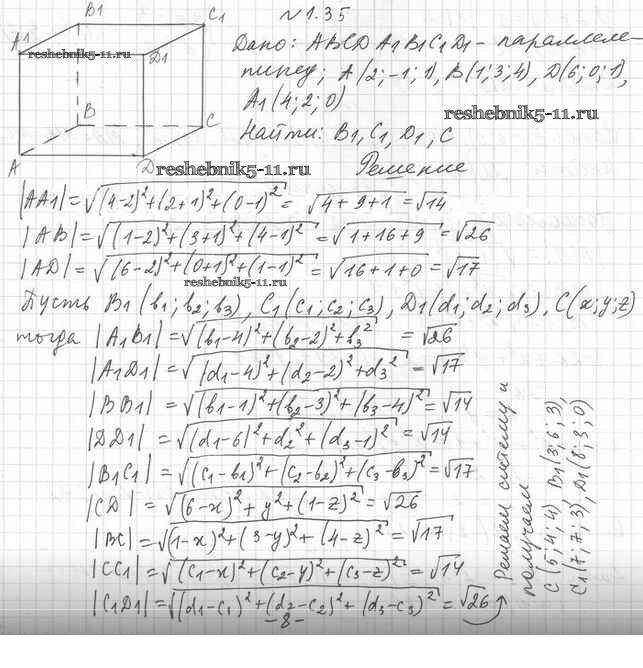 N 1.35
B1
C1
A1
D1
B
C
A
D
reshebnik5-11.ru
Дано: ABCD A1B1C1D1 - параллеле-
пипед; A(2; -1; 1), B(1; 3; 4), D(6; 0; 1),
A1(4; 2; 0)
reshebnik5-11.ru
Найти: B1, C1, D1, C
reshebnik5-11.ru
Решение
|AA1| = √((4-2)² + (2+1)² + (0-1)²) = √(4+9+1) = √14
|AB| = √((1-2)² + (3+1)² + (4-1)²) = √(1+16+9) = √26
|AD| = √((6-2)² + (0+1)² + (1-1)²) = √(16+1+0) = √17
Пусть B1(b1; b2; b3), C1(c1; c2; c3), D1(d1; d2; d3), C(x; y; z)
тогда |A1B1| = √((b1-4)² + (b2-2)² + b3²) = √26
|A1D1| = √((d1-4)² + (d2-2)² + d3²) = √17
|BB1| = √((b1-1)² + (b2-3)² + (b3-4)²) = √14
|DD1| = √((d1-6)² + d2² + (d3-1)²) = √14
|B1C1| = √((c1-b1)² + (c2-b2)² + (c3-b3)²) = √17
|CD| = √((6-x)² + y² + (1-z)²) = √26
|BC| = √((1-x)² + (3-y)² + (4-z)²) = √17
|CC1| = √((c1-x)² + (c2-y)² + (c3-z)²) = √14
|C1D1| = √((d1-c1)² + (d2-c2)² + (d3-c3)²) = √26
Решаем систему и
получаем
C(5; 4; 4) B1(3; 6; 3),
C1(7; 7; 3), D1(8; 3; 0)
-8-